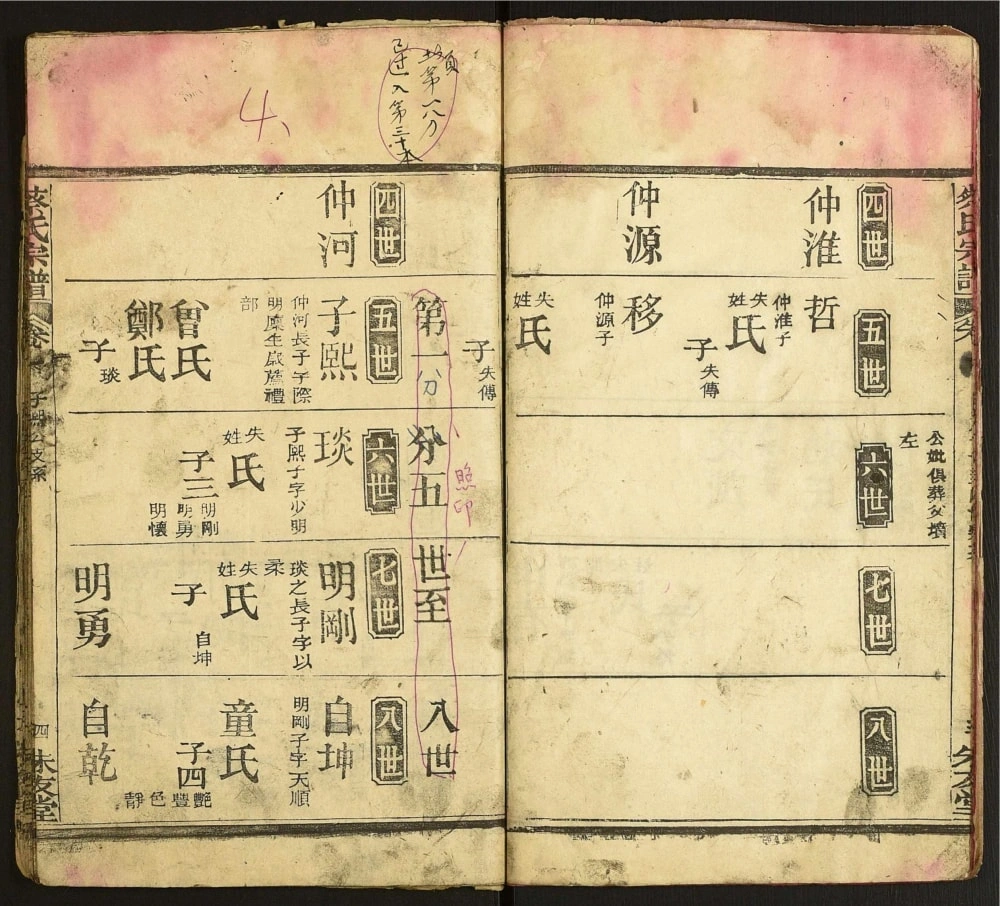 四世
仲淮
仲源
五世
哲
仲淮子
失姓氏
子
失傳
移
仲源子
失姓氏
子
失傳
六世
左
七世
八世
4、
第一分
分五
世至
八世
照印
四世
仲河
五世
子熙
仲河長子字際
明廩生歲薦禮
部
曾氏
鄭氏
子
琰
六世
琰
子熙子字少明
失姓氏
子三
明剛
明勇
明懷
七世
明剛
琰之長子字以
柔
失姓氏
子
自坤
明勇
八世
自坤
明剛子字天順
童氏
子四
艷豐色靜
自乾
蔡氏宗譜
四